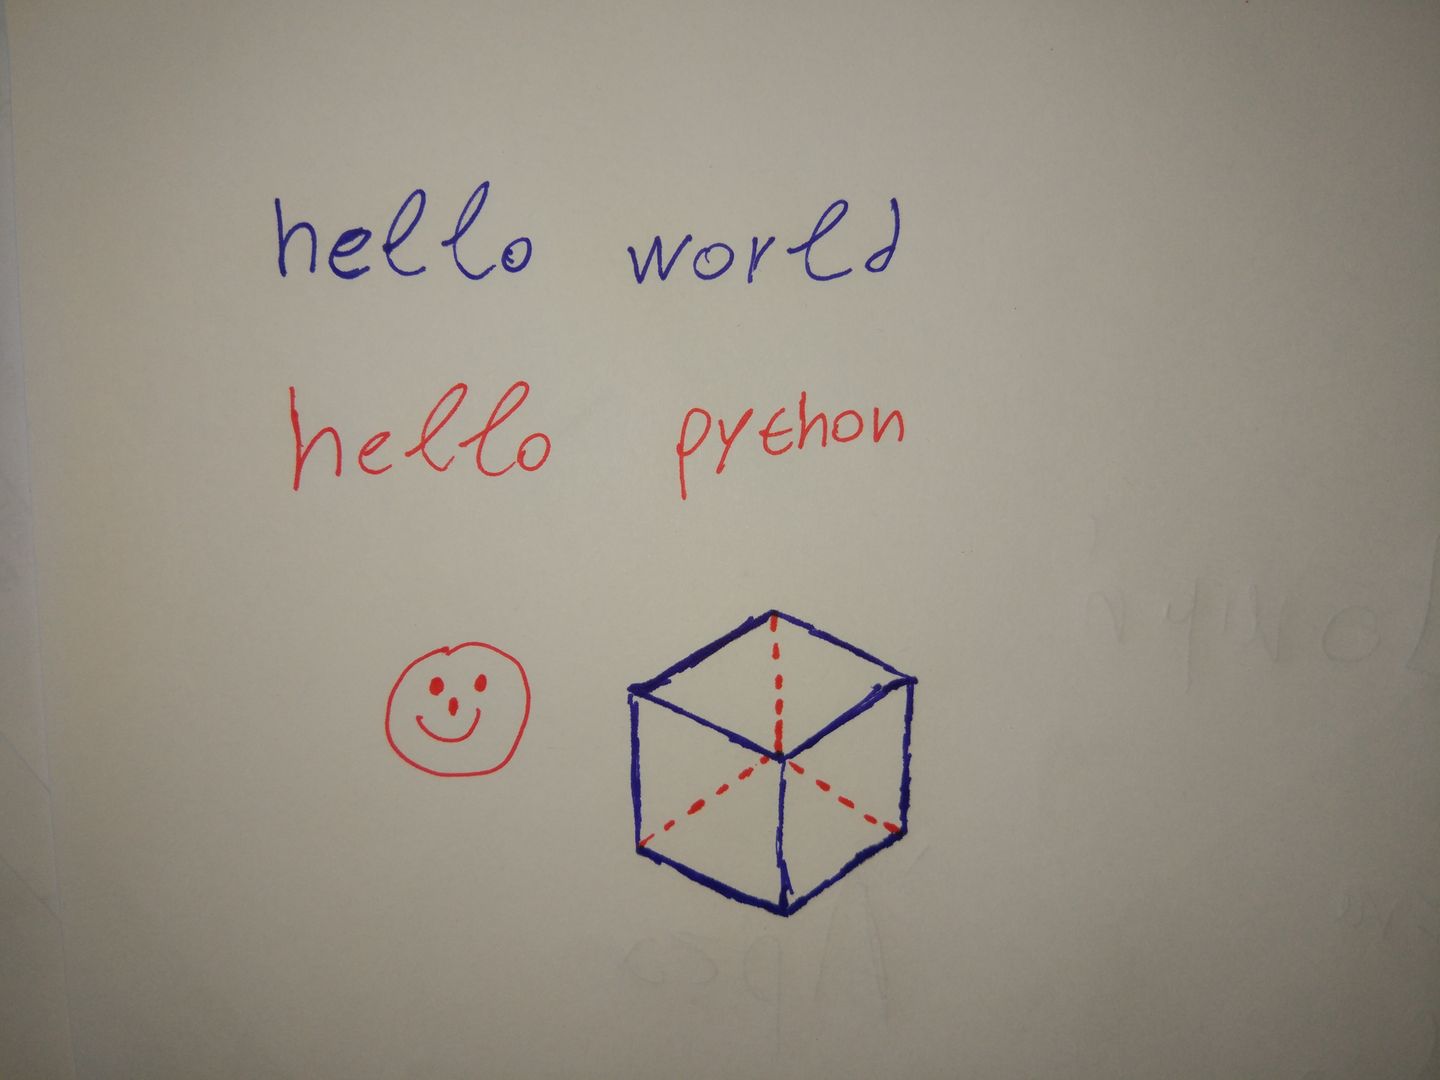 hello world
hello python